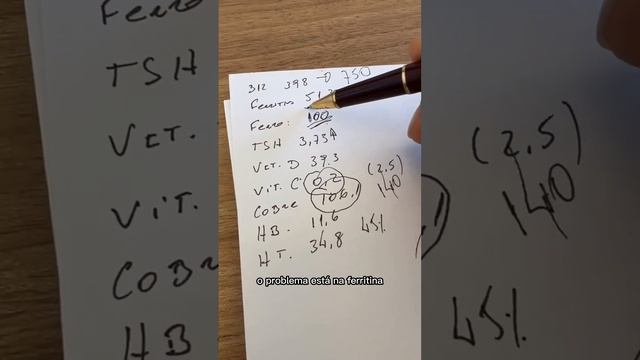 312 398 → 750
Ferritin 51,
Ferro: 100
TSH 3,734
Vit. D 39.3
Vit. C 0,2 (2.5)
Cobre 106,1 140
HB. 11,6
HT. 34,8 45%
o problema está na ferritina
Ferro
TSH
Vit.
Vit.
Cobre
HB
(2.5)
140
45%